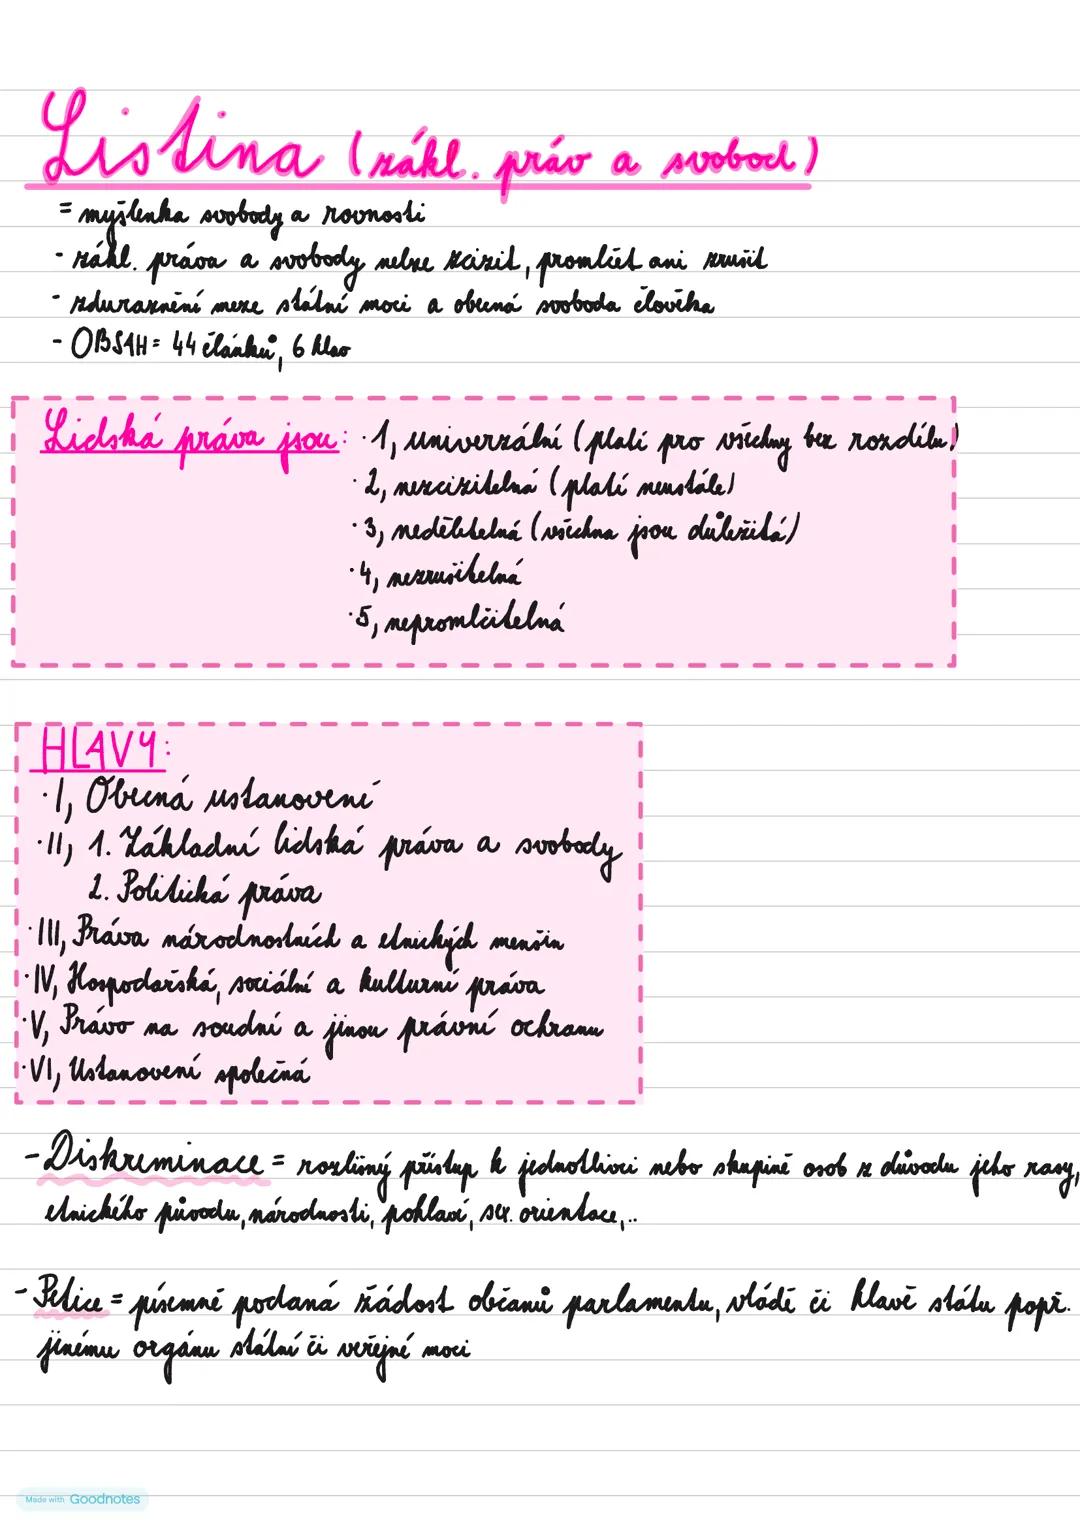 Listina (zákl. práv a svobod)
= myšlenka svobody a rovnosti
- zákl. práva a svobody nelze zcizit, promlčet ani zrušit
- zduraznění meze státní moci a obecná svoboda člověka
- OBSAH = 44 článků, 6 hlav
Lidská práva jsou: · 1, univerzální (platí pro všechny bez rozdílu)
· 2, nezcizitelná (platí neustále)
· 3, nedělitelná (všechna jsou důležitá)
· 4, nezrušitelná
· 5, nepromlčitelná
HLAVY:
· I, Obecná ustanovení
· II, 1. Základní lidská práva a svobody
2. Politická práva
· III, Práva národnostních a etnických menšin
· IV, Hospodářská, sociální a kulturní práva
· V, Právo na soudní a jinou právní ochranu
· VI, Ustanovení společná
- Diskreminace = rozlišný přístup k jednotlivci nebo skupině osob z důvodu jeho rasy,
etnického původu, národnosti, pohlaví, sex. orientace,..
- Petice = písemně podaná žádost občanů parlamentu, vládě či hlavě státu popř.
jinému orgánu státní či veřejné moci
Made with Goodnotes